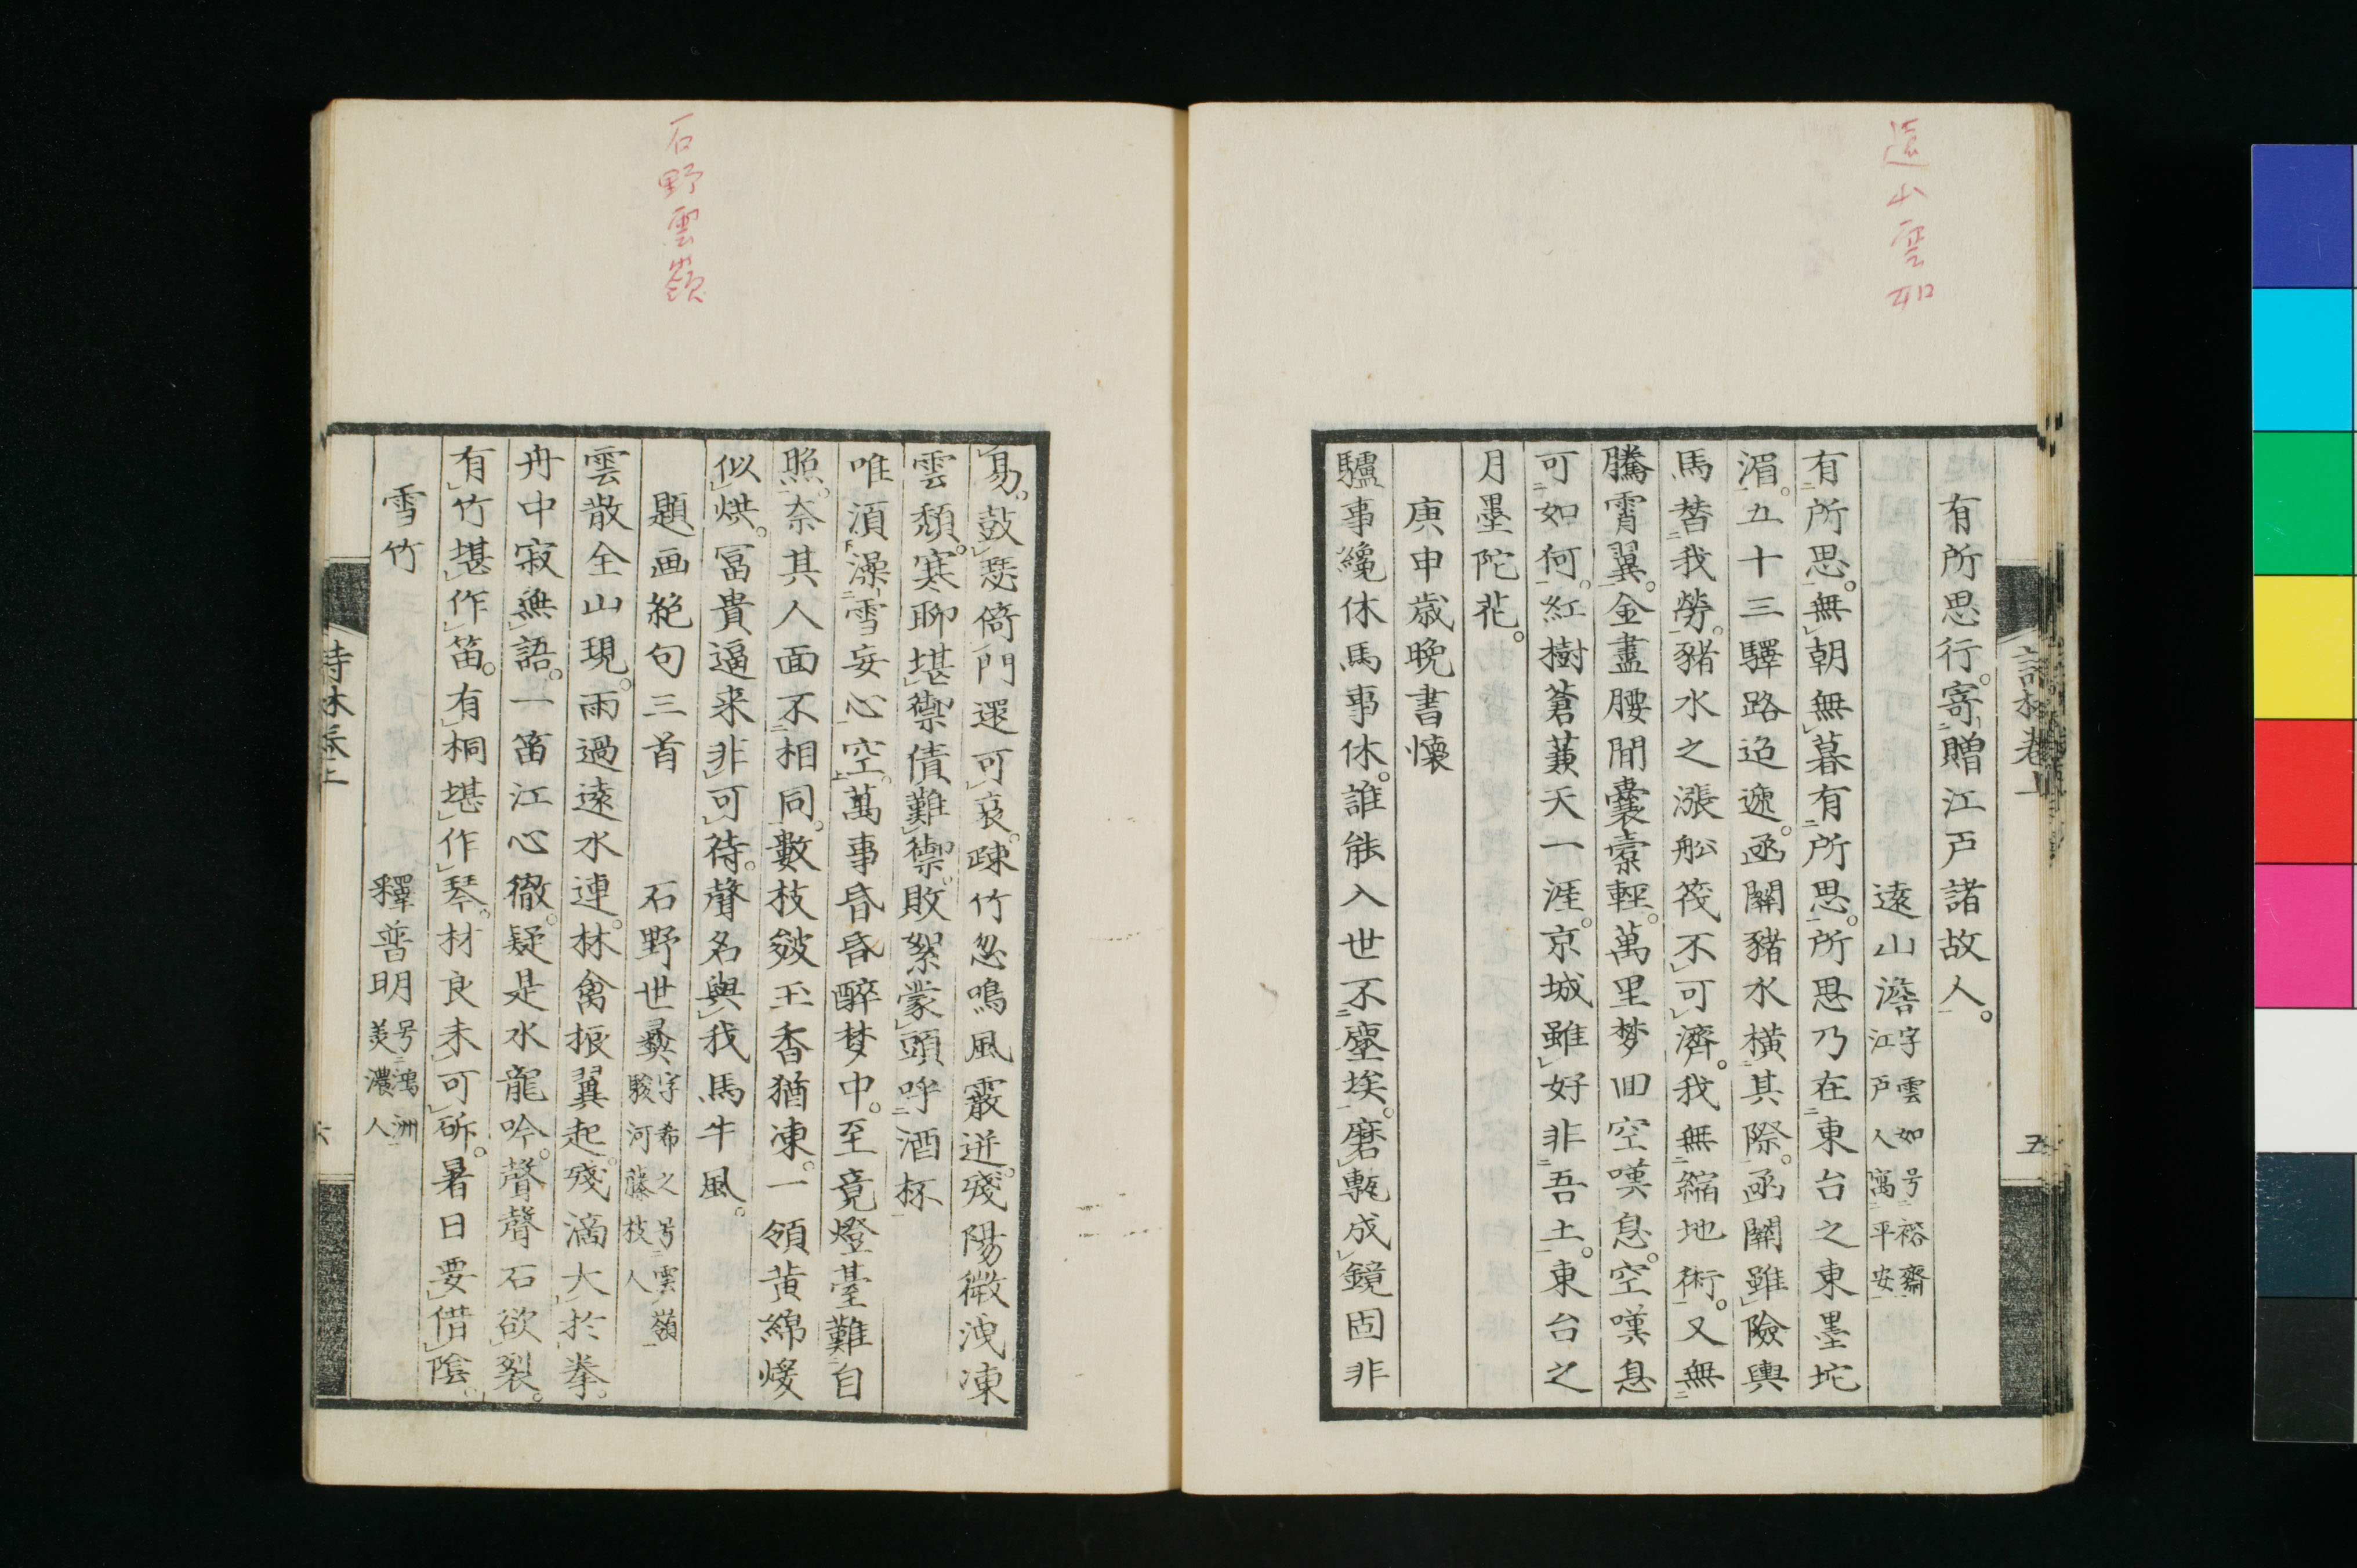 遠山雲如
有所思行。寄贈江戸諸故人。
遠山澹字雲如号裕齋江戸人寓平安
有所思。無朝無暮有所思。所思乃在東台之東墨坨
湄。五十三驛路迢遞。函關豬水橫其際。函關雖險輿
馬替我勞。豬水之漲舩筏不可濟。我無縮地術。又無
騰霄翼。金盡腰間囊橐輕。萬里梦回空嘆息。空嘆息
可如何。紅樹蒼蒹天一涯。京城雖好非吾土。東台之
月墨陀花。
庚申歳晚書懷
驢事纔休馬事休。誰能入世不塵埃。磨甎成鏡固非
詩林卷上
五
石野雲嶺
易。鼓瑟倚門還可哀。疎竹忽鳴風霰迸。殘陽微洩凍
雲頹。寒聊堪禦債難禦。敗絮蒙頭呼酒杯
唯須澡雪妄心空。萬事昏昏醉梦中。至竟燈臺難自
照。奈其人面不相同。數枝皴玉香猶凍。一領黃綿煖
似烘。冨貴逼来非可待。聲名與我馬牛風。
題画絶句三首
石野世彜字希之号雲嶺駿河藤枝人
雲散全山現。雨過遠水連。林禽振翼起。殘滴大於拳。
舟中寂無語。一笛江心徹。疑是水龍吟。聲聲石欲裂。
有竹堪作笛。有桐堪作琴。材良未可斫。暑日要借陰。
雪竹
釋普明号鴻洲美濃人
詩林卷上
六